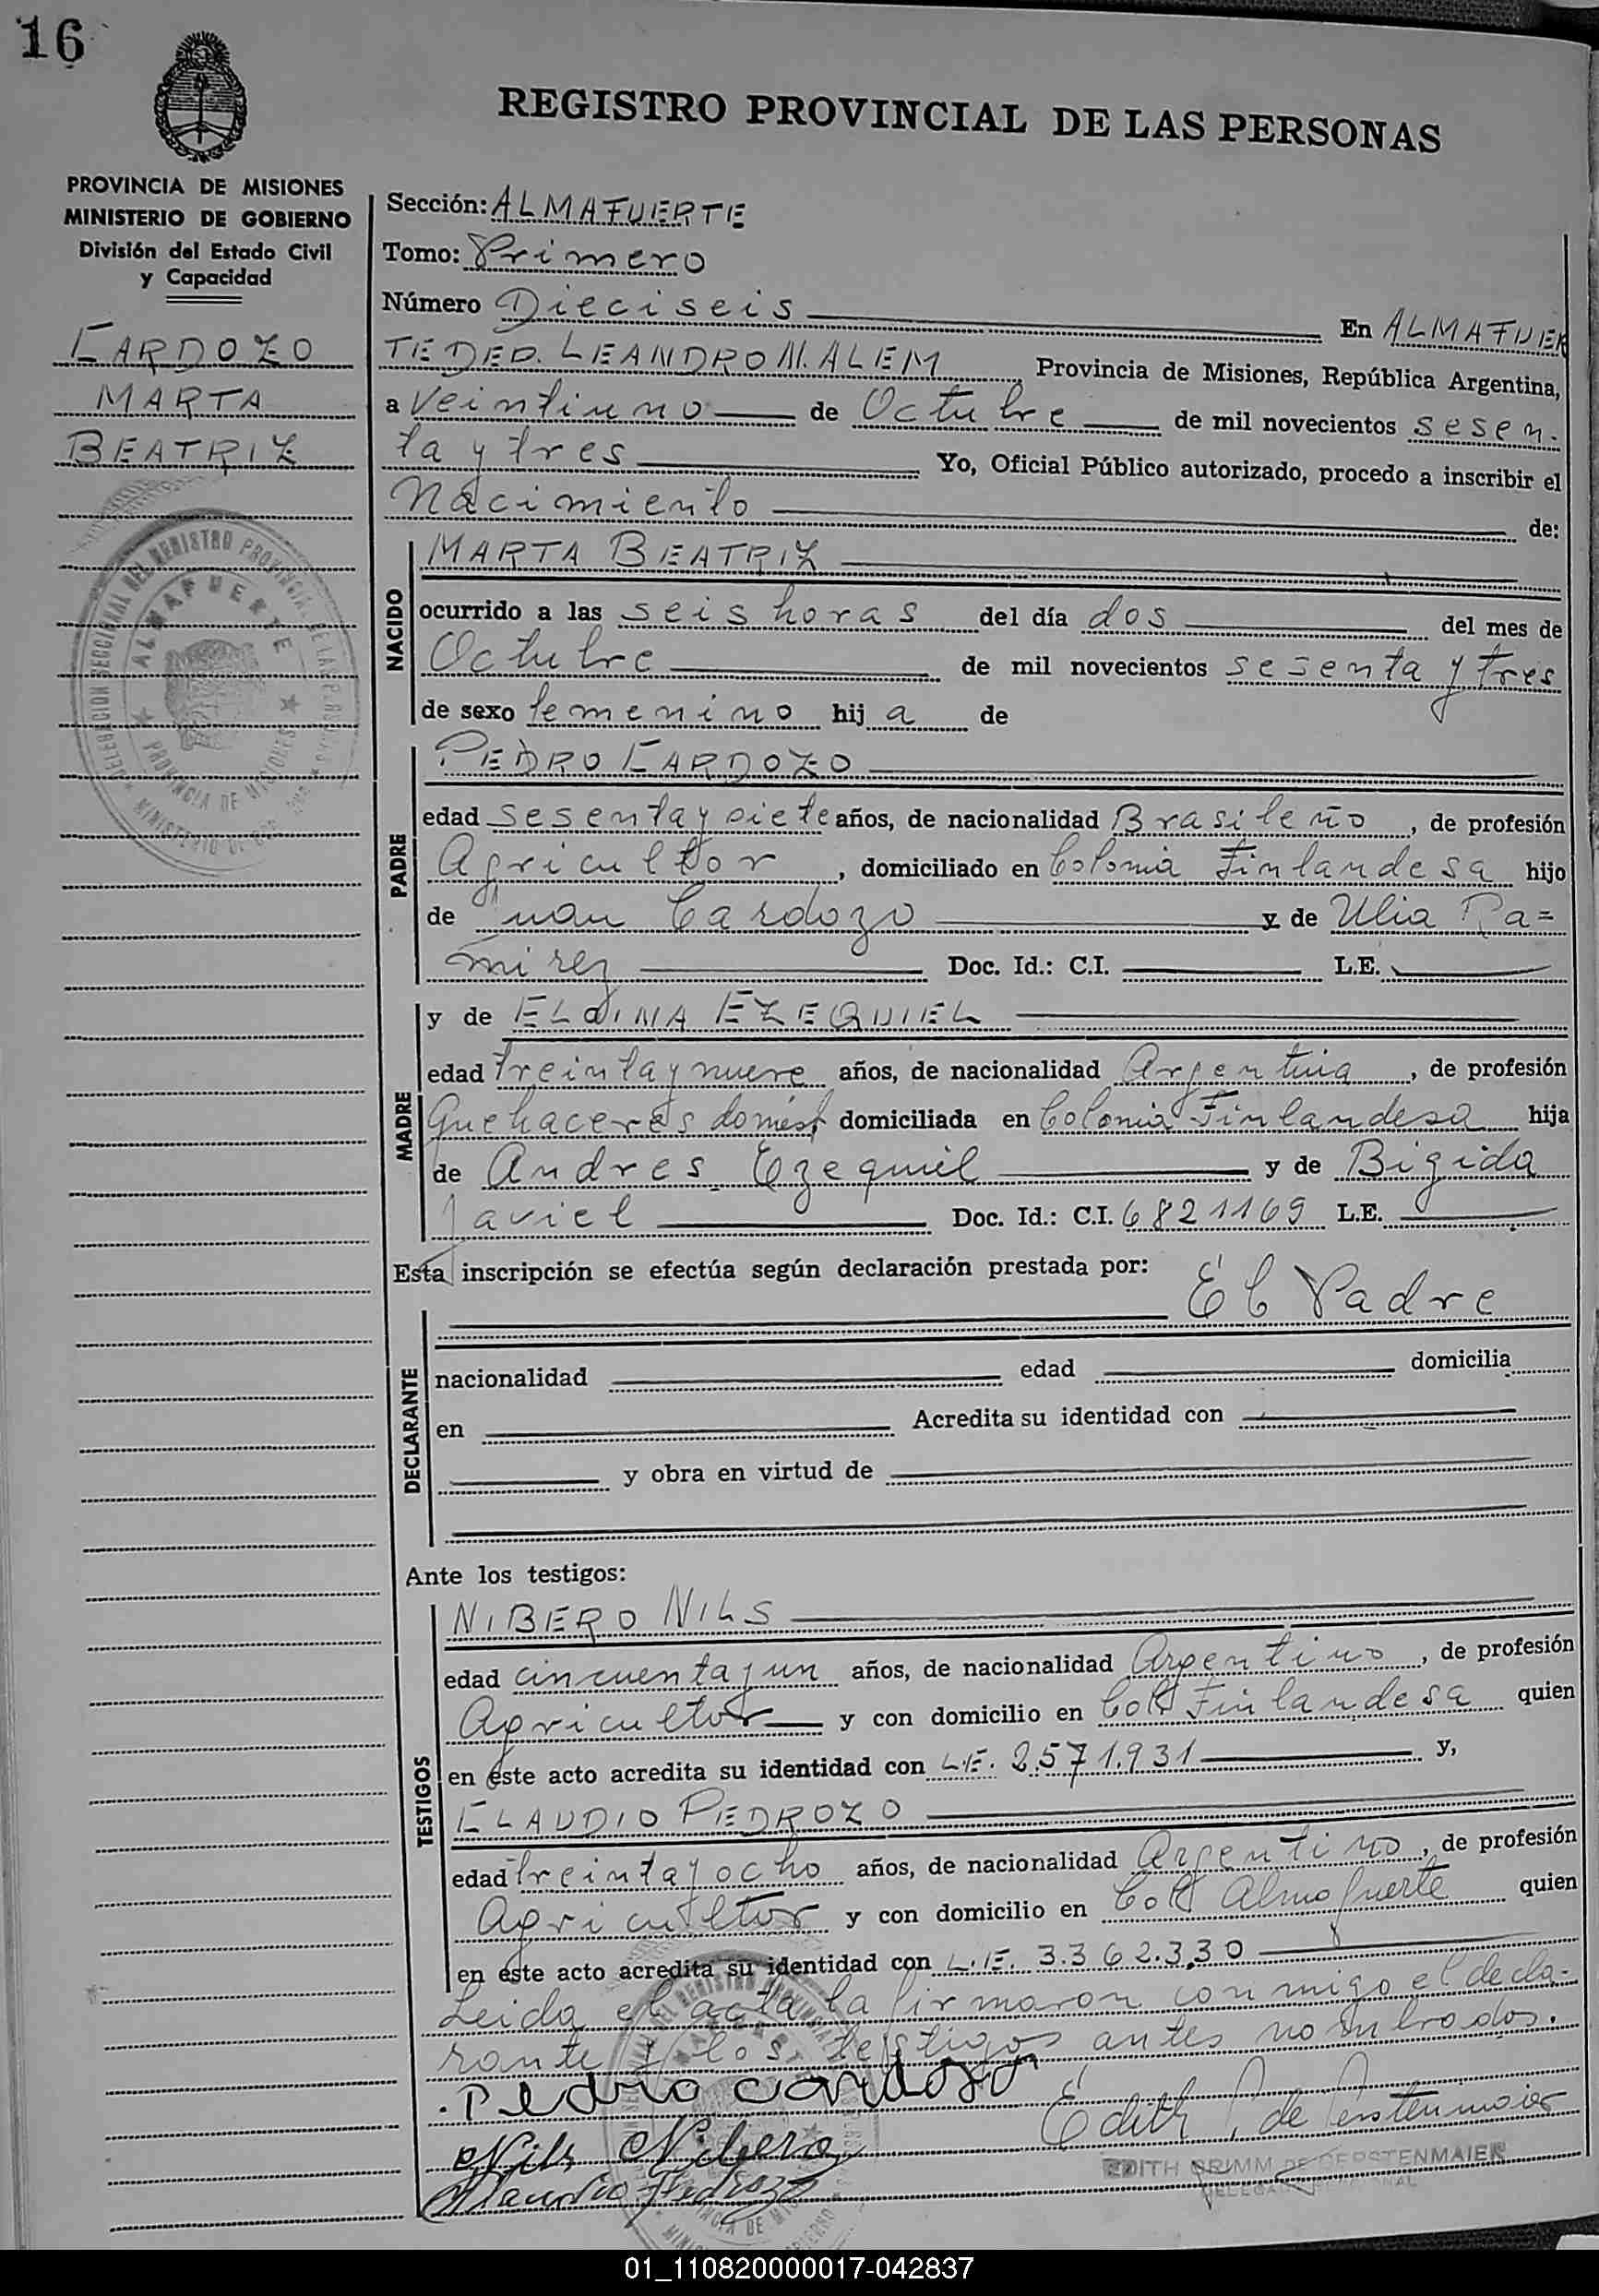 16
REGISTRO PROVINCIAL DE LAS PERSONAS
PROVINCIA DE MISIONES
MINISTERIO DE GOBIERNO
División del Estado Civil
y Capacidad
CARDOZO
MARTA
BEATRIZ
Sección: ALMAFUERTE
Tomo: Primero
Número Dieciseis En ALMAFUER
TE DEP. LEANDRO N. ALEM Provincia de Misiones, República Argentina,
a veintiuno de Octubre de mil novecientos sesen-
ta y tres Yo, Oficial Público autorizado, procedo a inscribir el
Nacimiento de:
NACIDO
MARTA BEATRIZ
ocurrido a las seis horas del día dos del mes de
Octubre de mil novecientos sesenta y tres
de sexo femenino hij a de
PADRE
PEDRO CARDOZO
edad sesenta y siete años, de nacionalidad Brasileño, de profesión
Agricultor, domiciliado en Colonia Finlandesa hijo
de Juan Cardozo y de Ulia Ra=
mirez Doc. Id.: C.I. L.E.
MADRE
y de ELOINA EZEQUIEL
edad treinta y nueve años, de nacionalidad Argentina, de profesión
Quehaceres domést domiciliada en Colonia Finlandesa hija
de Andres Ezequiel y de Bigida
Javiel Doc. Id.: C.I. 6821169 L.E.
Esta inscripción se efectúa según declaración prestada por:
El Padre
DECLARANTE
nacionalidad edad domicilia
en Acredita su identidad con
y obra en virtud de
Ante los testigos:
TESTIGOS
NIBERO NILS
edad cincuenta y un años, de nacionalidad Argentino, de profesión
Agricultor y con domicilio en Col. Finlandesa quien
en este acto acredita su identidad con L.E. 2.571.931 y,
CLAUDIO PEDROZO
edad treinta y ocho años, de nacionalidad Argentino, de profesión
Agricultor y con domicilio en Col. Almafuerte quien
en este acto acredita su identidad con L.E. 3.362.330
Leida el acta la firmaron conmigo el decla-
rante y los testigos antes nombrados.
Pedro Cardozo
Edith G. de Gerstenmaier
Nils Nibero
EDITH GRIMM DE GERSTENMAIER
Claudio Pedrozo
DELEGACION SECCIONAL DEL REGISTRO PROVINCIAL DE LAS PERSONAS
ALMAFUERTE
PROVINCIA DE MISIONES
01_110820000017-042837